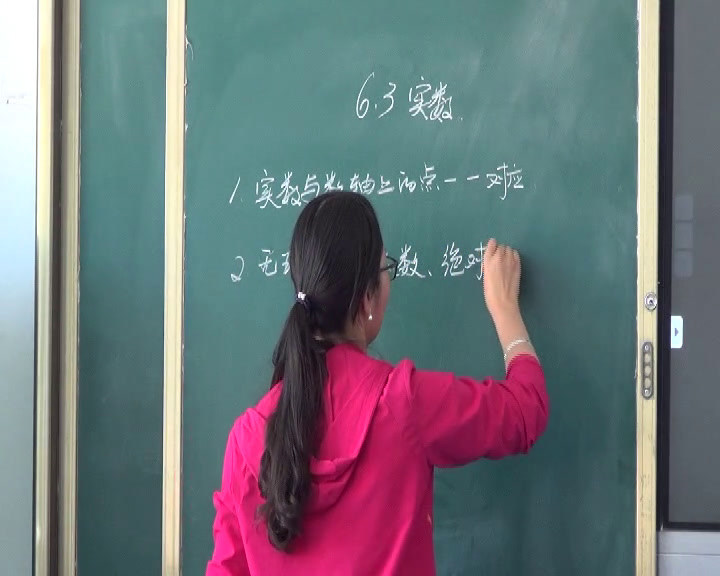 6.3 实数
1. 实数与数轴上的点一一对应
2 无 数、绝对